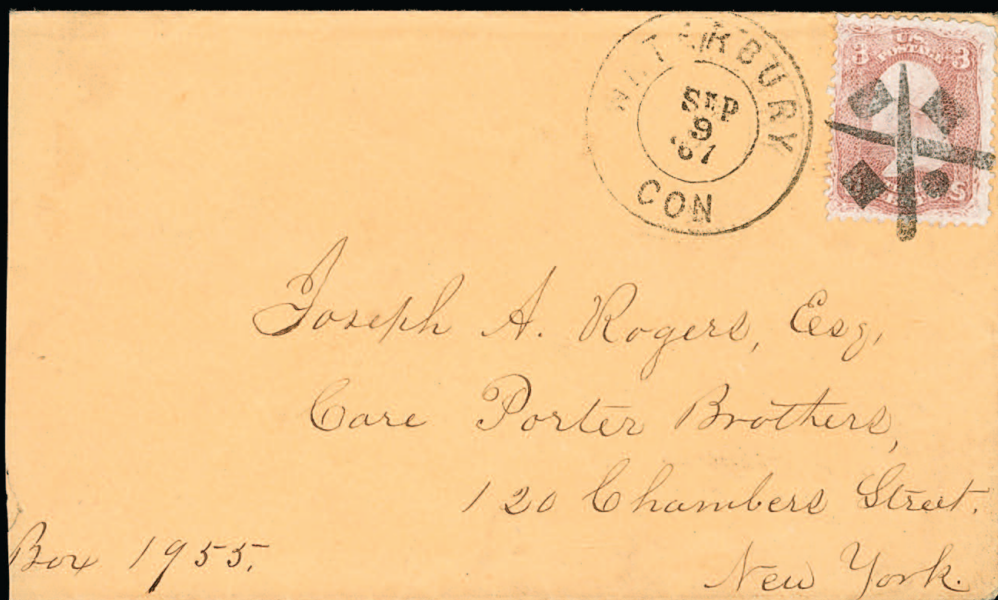 WATERBURY
SEP
9
'67
CON
U.S.
POSTAGE
3 3
Joseph A. Rogers, Esq,
Care Porter Brothers,
120 Chambers Street.
New York.
Box 1955.